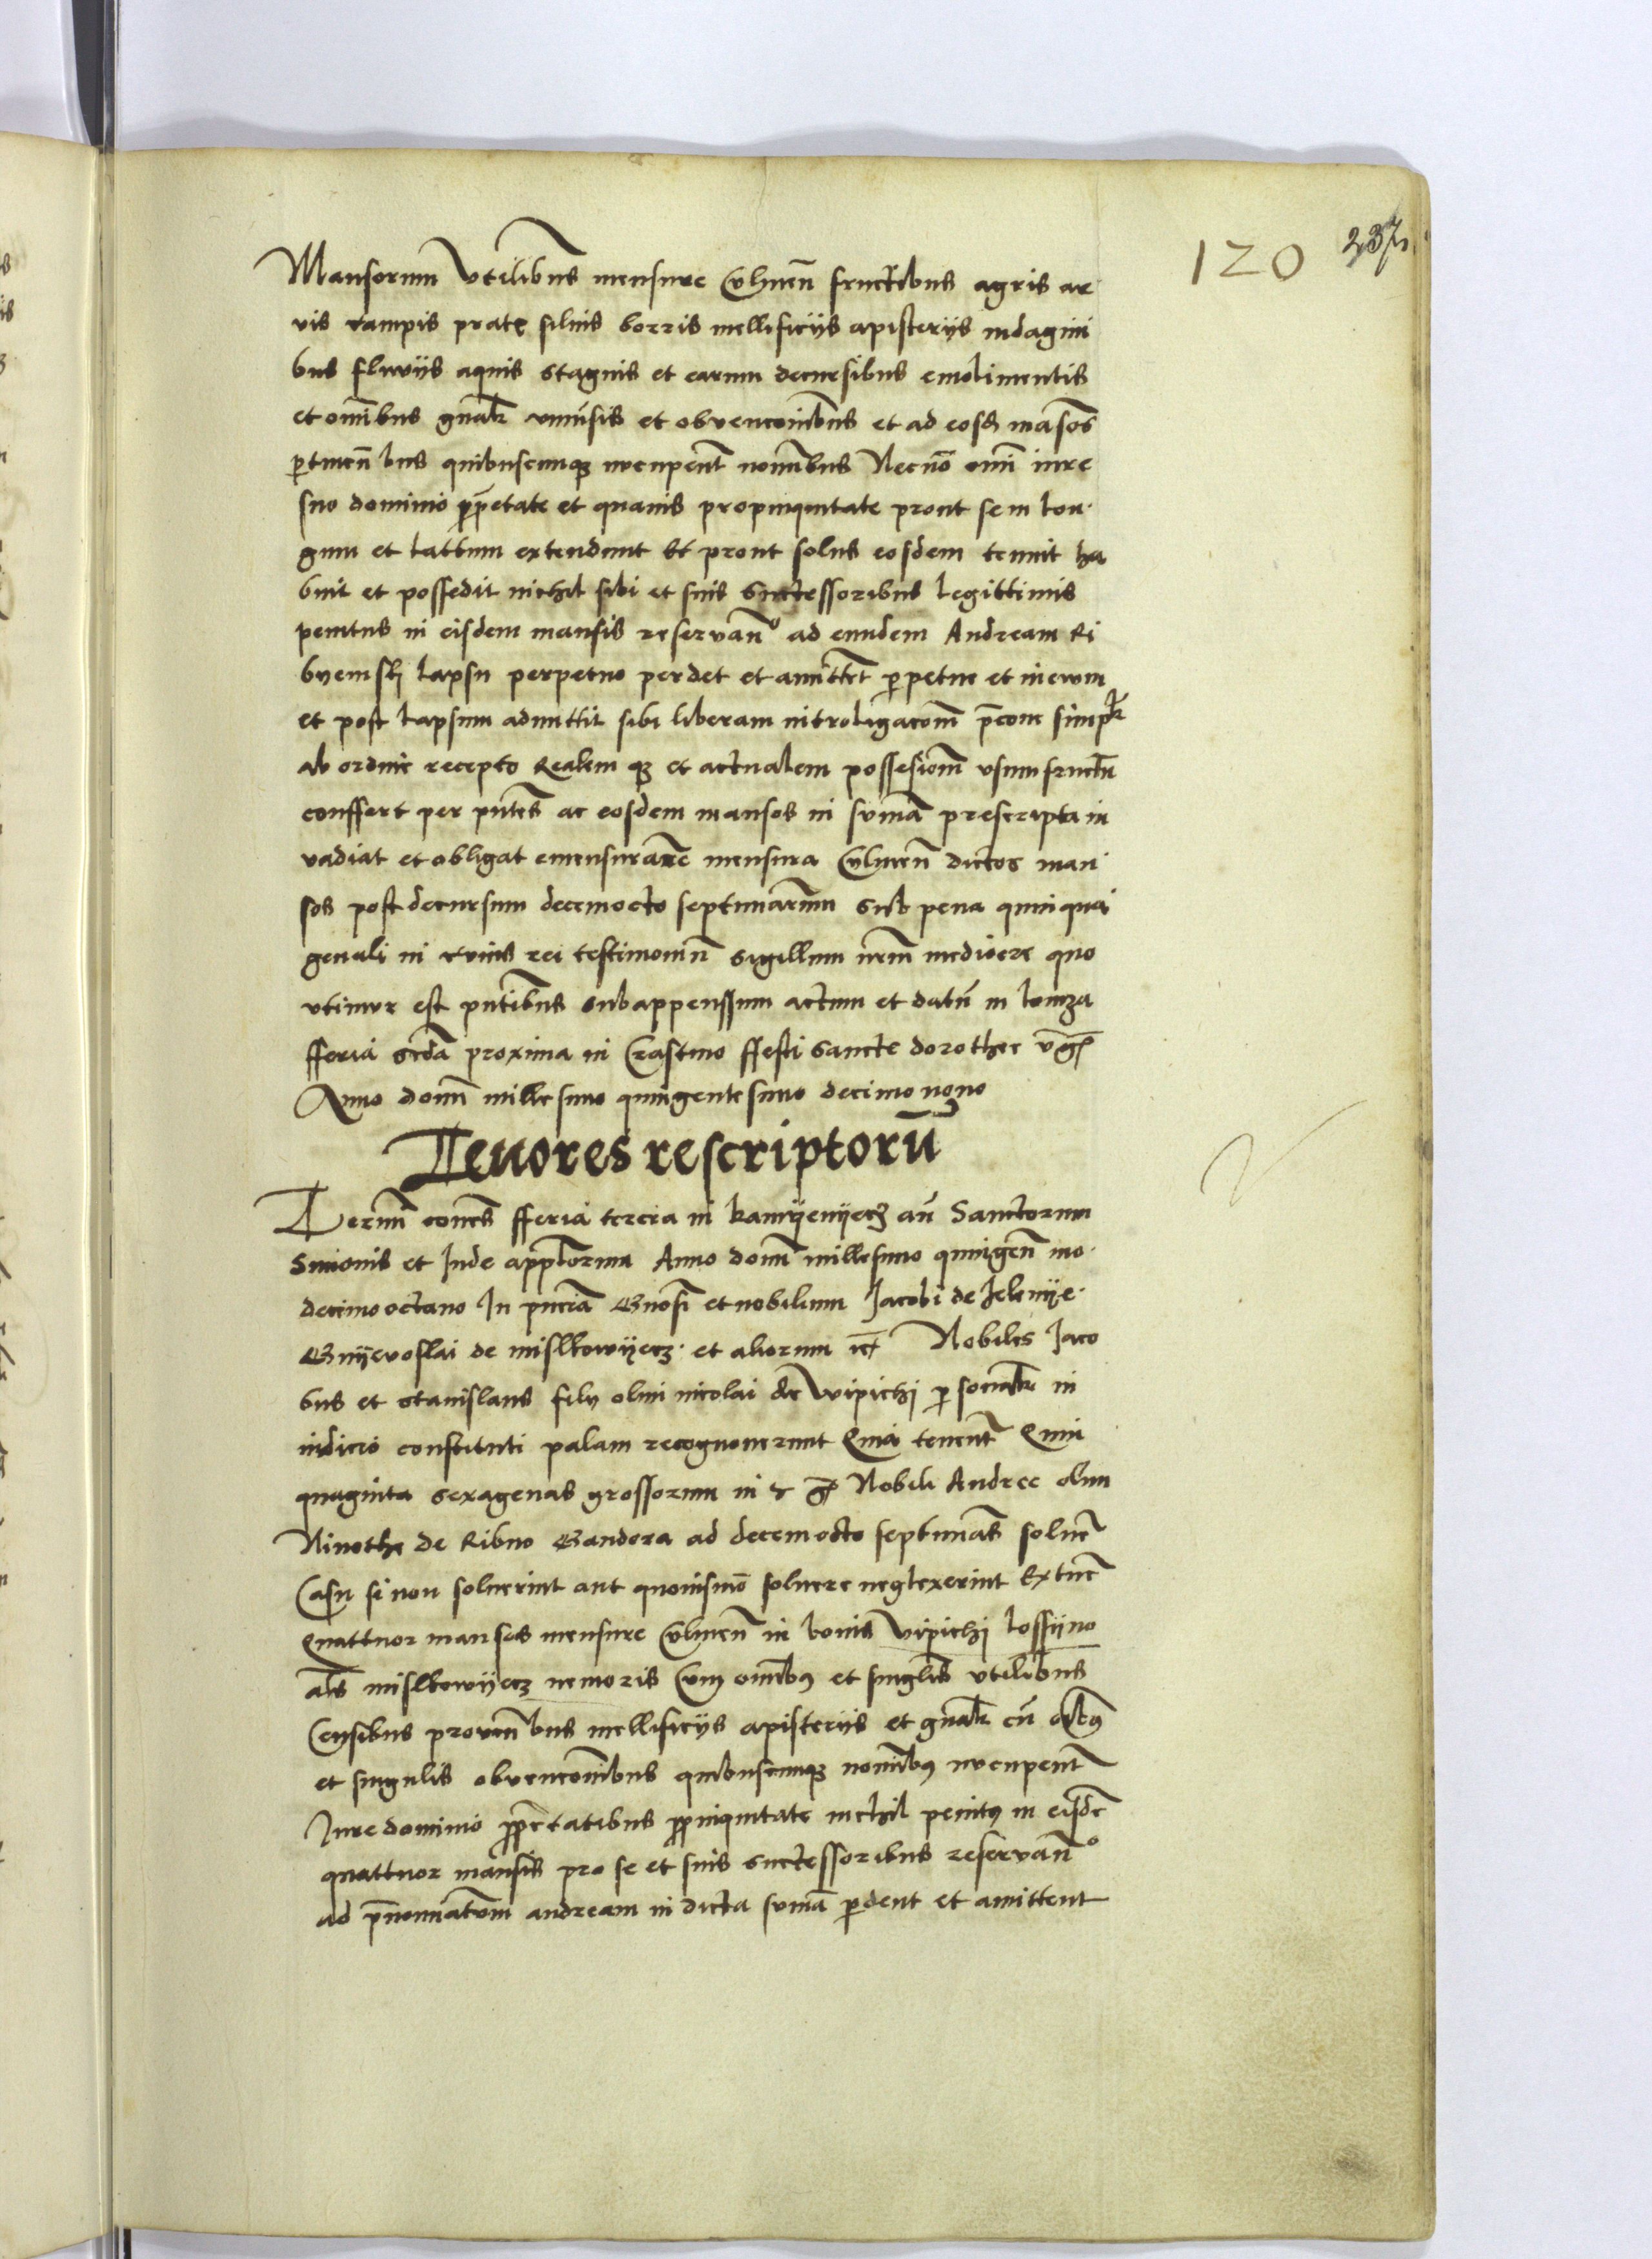 120 237
Mansorum vtilibus mensure Culmen̄ fructibus agris ar
vis campis prat siluis borris mellificÿs apisterÿs indagini
bus fluvÿs aquis stagnis et earum decursibus emolimentis
et om̄ibus gn̄alr vniu̇sis et obvenconibus et ad eosd mansos
ꝑtinen̄ bus quibuscumqꝫ nvcupent nomībus Necnō omī iure
suo dominio ꝓpetate et quauis propinquitate prout se in lon
gum et lattum extendunt Et prout solus eosdem tenuit ha
buit et possedit nichil sibi et suis successoribus legittimis
penitus in eisdem mansis reservan̄º ad eundem Andream Ri
byemskj lapsu perpetuo perdet et amittet ꝑpetue et in ewm
et post lapsum admittit sibi liberam introligaconm̄ simplr
ab ordine recepto Realem qꝫ et actualem possesionm̄ vsumfructū
conffert per pn̄tes ac eosdem mansos in sum̄a prescripta in
vadiat et obligat emensurare mensura Culmen̄ dictos man
sos post decursum decemocto septimanarum sub pena quinqua
genali in cuius rei testimoniū sigillum nr̄m mediocre quo
vtimur est pn̄tibus subappenssum actum et datū in lomza
fferia scdā proxima in Crastino ffesti sancte dorothee vgīs
Anno domī millesimo quingentesimo decimo nono
Tenores rescriptorū
Termī conēs fferia tercia in kamÿenÿecz an̄ Sanctorum
Simonis et Jude applorum Anno domī millesimo quingen̄ mo
decimooctauo In pn̄cia Gnosī et nobilium Jacobi de Jelenÿe
Gnÿevoslai de mislkowÿecz et aliorum ec̄t Nobiles Jaco
bus et stanislaus filÿ olim nicolai de wipichj ꝑsonalr in
iudicio constituti palam recognouerunt Quia tenent Quin
quaginta sexagenas grossorum in Nobili Andree olim
Ninothe de Ribno Gandora ad decemocto septimas̄ soluē
Casu si non soluerint aut quouismō soluere neglexerint Extūc
Quattuor mansos mensure Culmen̄ in bonis wipichj lossÿno
al̄s mislkowÿecz nemoris Cum om̄ibꝯ et singlis vtilibus
Censibus provin̄ bus mellificÿs apisterÿs et gn̄alr cū oībꝯ
et singulis obvenconībus quibuscumqꝫ nomībꝯ nvcupent
Jure dominio ꝓpetatibus ꝓpinquitate nichil penitꝯ in eisdē
quattuor mansis pro se et suis successoribus reservan̄º
ad p̄nominatum andream in dicta sum̄a ꝑdent et amittent